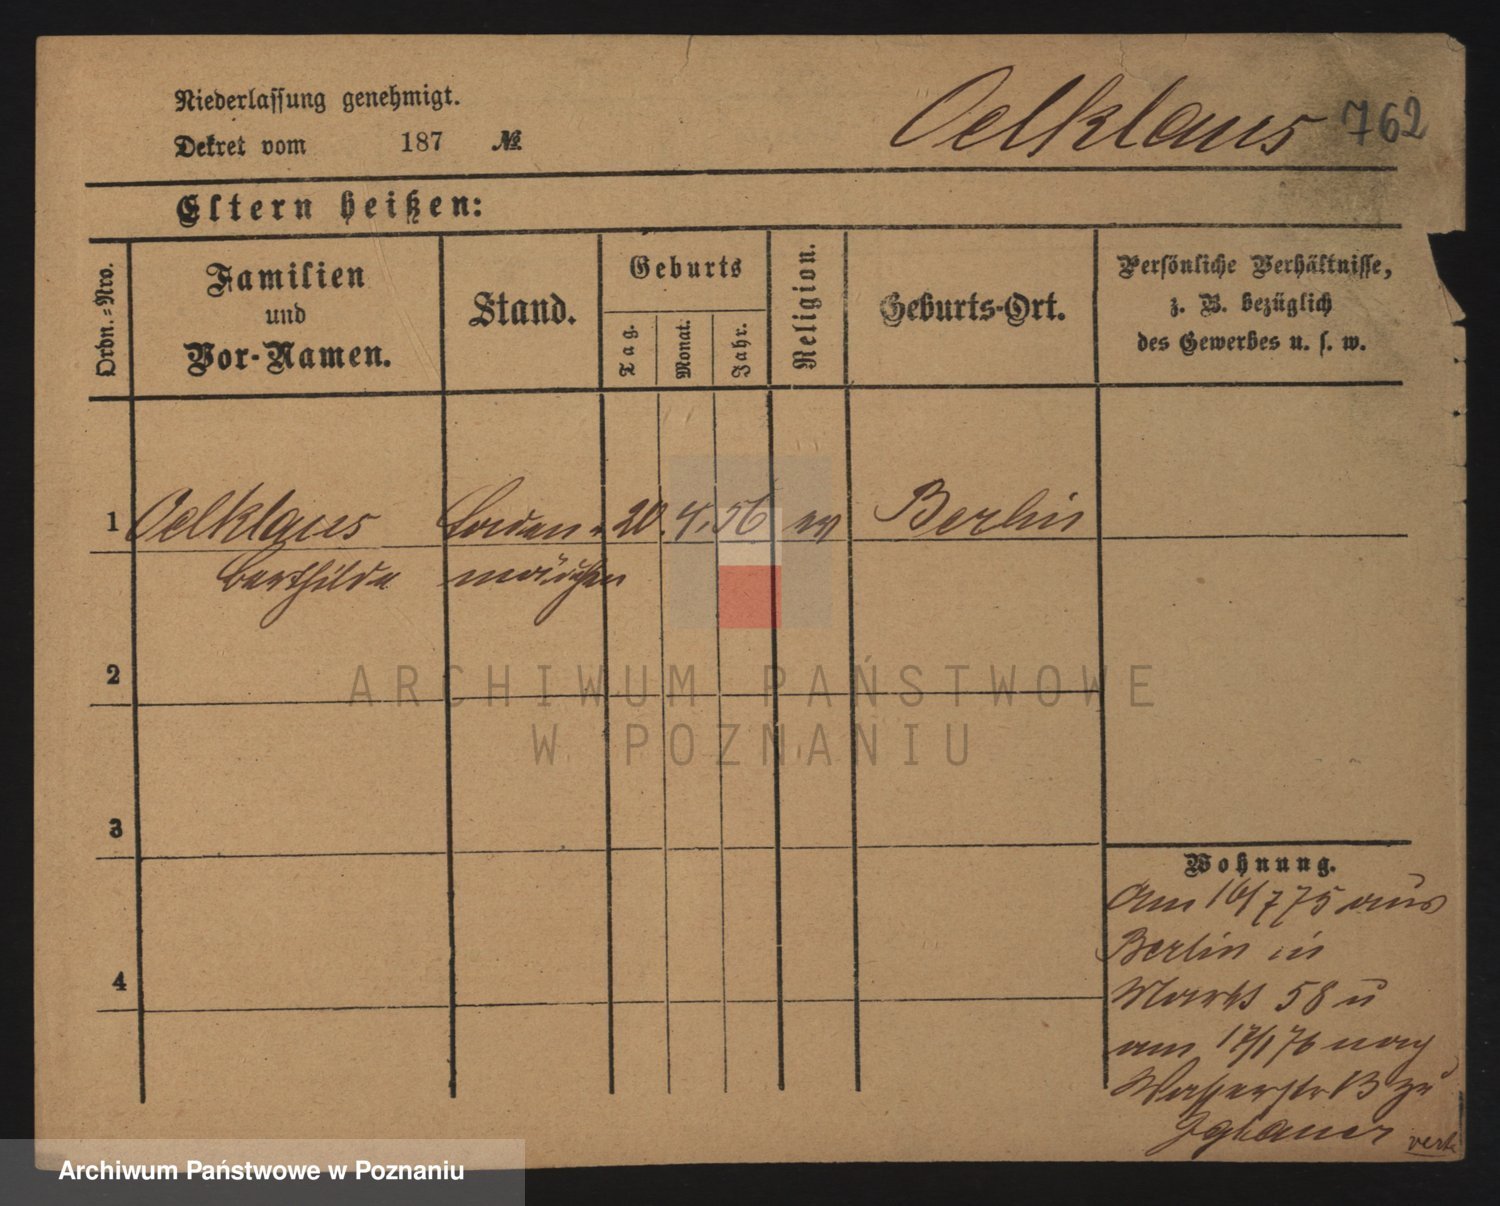 Niederlassung genehmigt.
Dekret vom 187 №
Oelklaus 762
Eltern heißen:
Ordn.-Nro.
Familien
und
Vor-Namen.
Stand.
Geburts
Tag.
Monat.
Jahr.
Religion.
Geburts-Ort.
Persönliche Verhältnisse,
z. B. bezüglich
des Gewerbes u. s. w.
1 Oelklaus Laden- 20. 4. 56 ev Berlin
Berthilde mädchen
2
3
4
Wohnung.
Am 16/7 75 aus
Berlin in
Markt 58 u
am 17/1 76 nach
Wasserstr 13 zu
ARCHIWUM PAŃSTWOWE
W POZNANIU
Archiwum Państwowe w Poznaniu